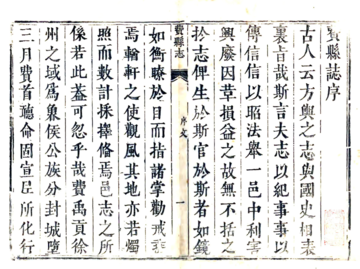 費縣誌序
古人云方輿之志與國史相表
裏旨哉斯言夫志以紀事事以
傳信信以昭法舉一邑中利害
興廢因革損益之故無不括之
於志俾生於斯官於斯者如鏡
費縣志
序文
一
如衡瞭於目而指諸掌勸戒
焉輶軒之使觀風其地亦若燭
照而數計採擇脩焉邑志之所
係若此葢可忽乎哉費禹貢徐
州之域爲魯侯公族分封城墮
三月費首聽命固宣尼所化行